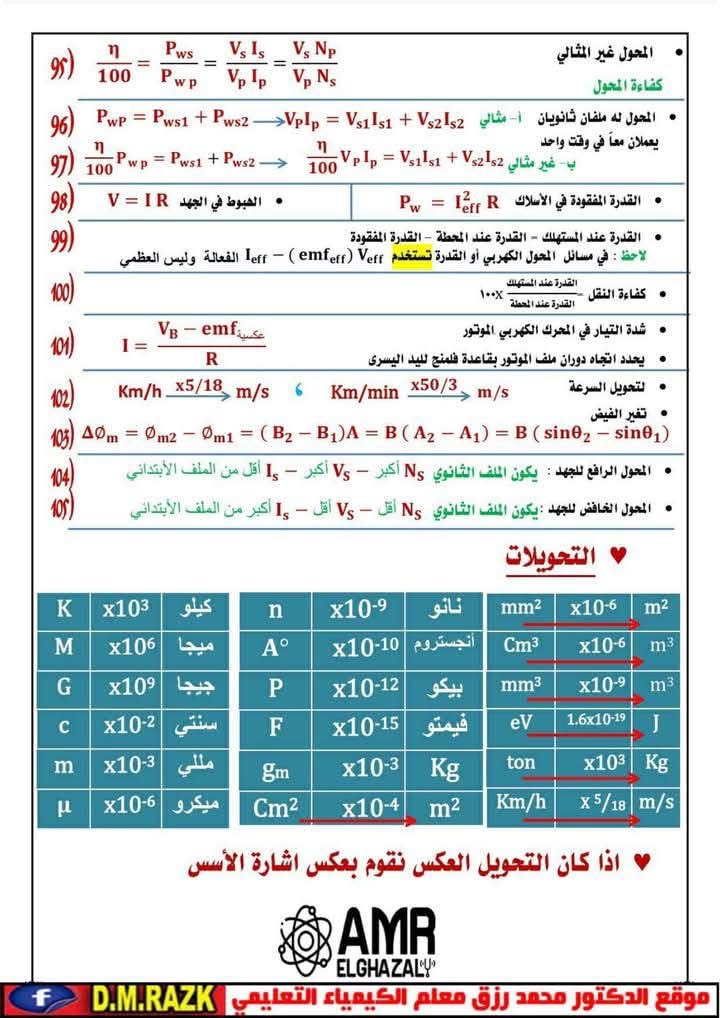 • المحول غير المثالي
كفاءة المحول
95) η/100 = Pws/Pwp = Vs Is/Vp Ip = Vs Np/Vp Ns
• المحول له ملفان ثانويان أ- مثالي
يعملان معاً في وقت واحد
96) PwP = Pws1 + Pws2 ⟶ VpIp = Vs1Is1 + Vs2Is2
ب- غير مثالي
97) η/100 Pwp = Pws1 + Pws2 ⟶ η/100 Vp Ip = Vs1Is1 + Vs2Is2
98) • القدرة المفقودة في الأسلاك Pw = I²eff R
• الهبوط في الجهد V = I R
99) • القدرة عند المستهلك = القدرة عند المحطة – القدرة المفقودة
لاحظ : في مسائل المحول الكهربي أو القدرة تستخدم Ieff – ( emfeff) Veff الفعالة وليس العظمي
100) • كفاءة النقل = القدرة عند المستهلك/القدرة عند المحطة x١٠٠
• شدة التيار في المحرك الكهربي الموتور
101) I = VB − emfعكسية/R
• يحدد اتجاه دوران ملف الموتور بقاعدة فلمنج لليد اليسرى
102) • لتحويل السرعة Km/h x5/18⟶ m/s ، Km/min x50/3⟶ m/s
• تغير الفيض
103) ΔØm = Øm2 − Øm1 = ( B2 − B1)A = B ( A2 − A1) = B ( sinθ2 − sinθ1)
104) • المحول الرافع للجهد : يكون الملف الثانوي Ns أكبر – Vs أكبر – Is أقل من الملف الأبتدائي
105) • المحول الخافض للجهد : يكون الملف الثانوي Ns أقل – Vs أقل – Is أكبر من الملف الأبتدائي
♥ التحويلات
K x10³ كيلو
M x10⁶ ميجا
G x10⁹ جيجا
c x10⁻² سنتي
m x10⁻³ مللي
µ x10⁻⁶ ميكرو
n x10⁻⁹ نانو
A° x10⁻¹⁰ أنجستروم
P x10⁻¹² بيكو
F x10⁻¹⁵ فيمتو
gm x10⁻³ Kg
Cm² x10⁻⁴ m²
mm² x10⁻⁶ m²
Cm³ x10⁻⁶ m³
mm³ x10⁻⁹ m³
eV 1.6x10⁻¹⁹ J
ton x10³ Kg
Km/h x 5/18 m/s
♥ اذا كان التحويل العكس نقوم بعكس اشارة الأسس
AMR
ELGHAZALY
موقع الدكتور محمد رزق معلم الكيمياء التعليمي D.M.RAZK f